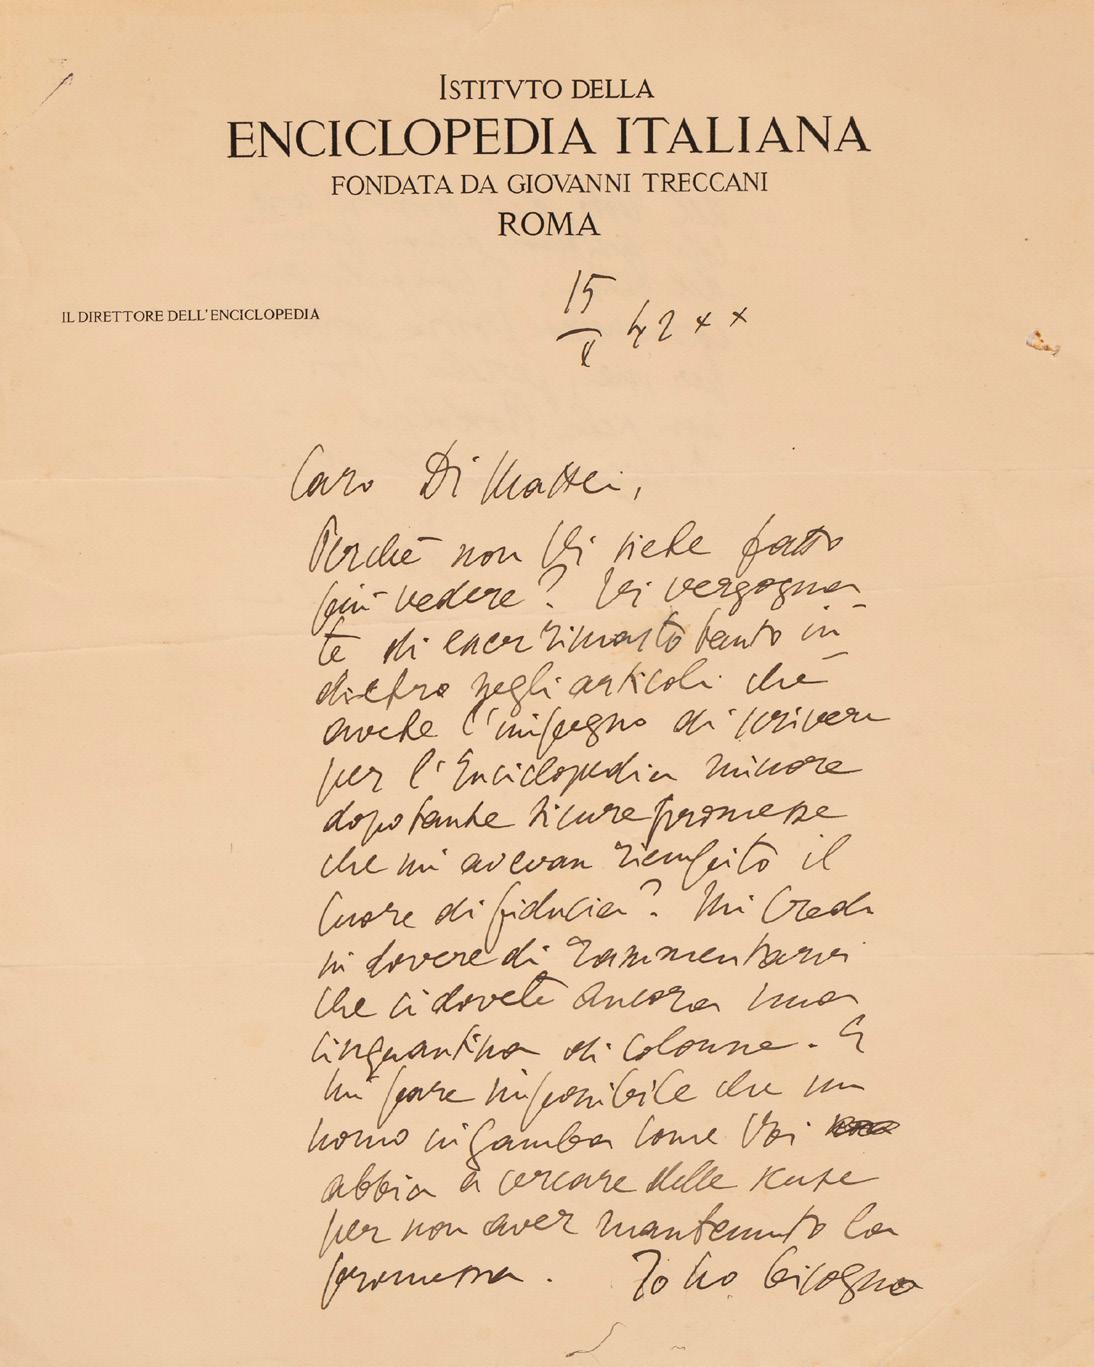 ISTITVTO DELLA
ENCICLOPEDIA ITALIANA
FONDATA DA GIOVANNI TRECCANI
ROMA
15
IL DIRETTORE DELL'ENCICLOPEDIA
X 42 XX
Caro Di Mattei,
Perchè non Vi siete fatto
più vedere? Vi vergogna
te di esser rimasto tanto in-
dietro negli articoli che
avete l'impegno di scrivere
per l'Enciclopedia minore
dopo tante sicure promesse
che mi avevan riempito il
cuore di fiducia? Mi credo
in dovere di rammentarvi
che ci dovete ancora una
cinquantina di colonne. E
mi pare impossibile che un
uomo in gamba come Voi
abbia a cercare delle scuse
per non aver mantenuto la
promessa. Io ho bisogno